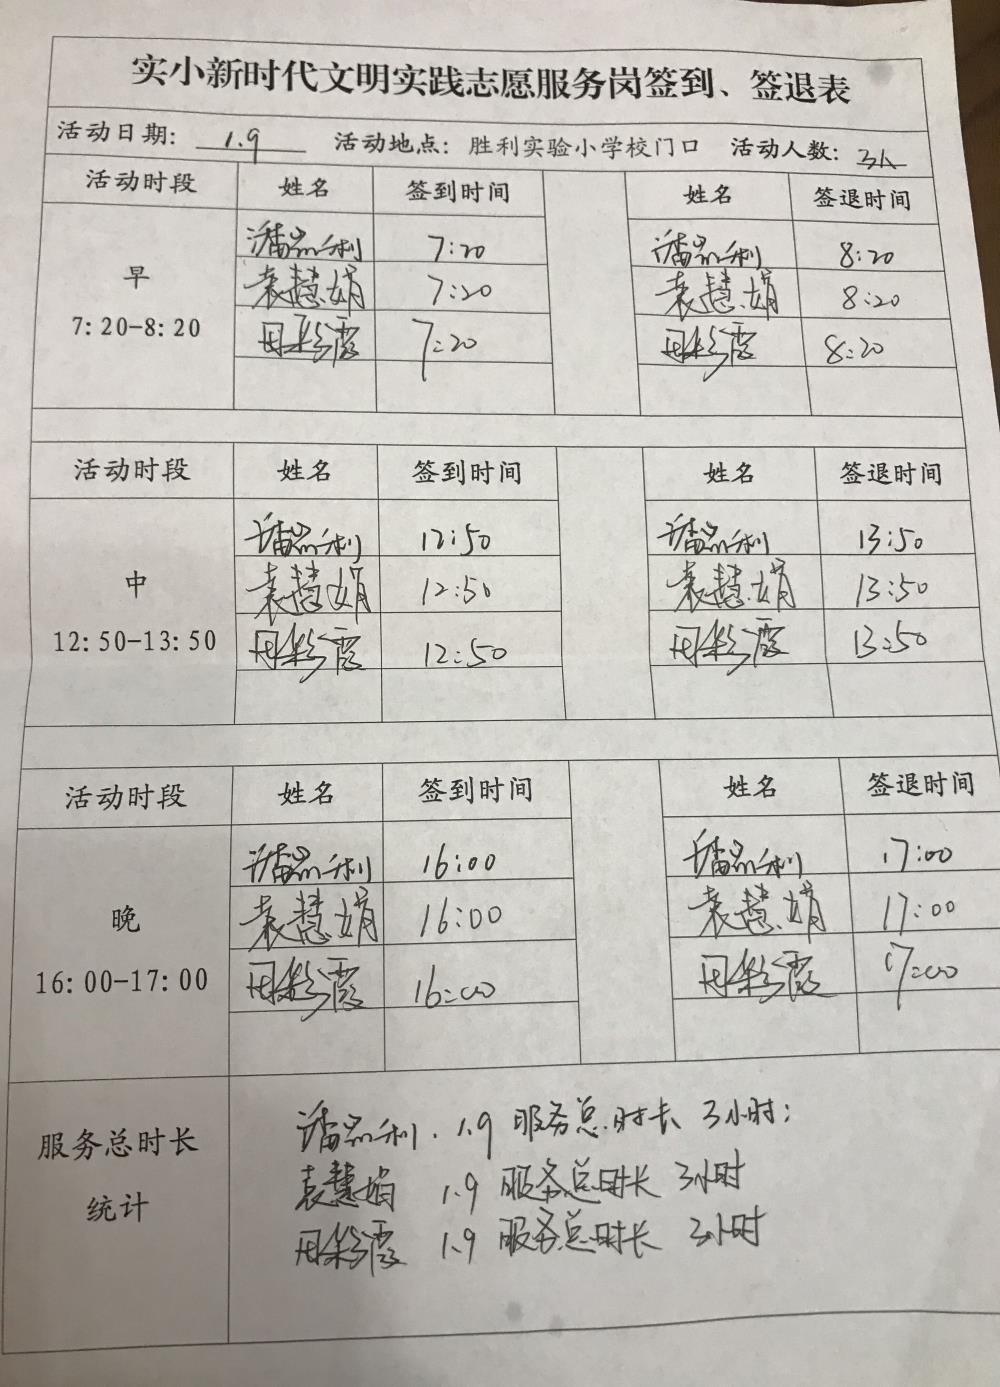 实小新时代文明实践志愿服务岗签到、签退表
活动日期: 1.9 活动地点: 胜利实验小学校门口 活动人数: 3人
活动时段 姓名 签到时间 姓名 签退时间
潘品利 7:20 潘品利 8:20
早
袁慧娟 7:20 袁慧娟 8:20
7:20-8:20
周彩霞 7:20 周彩霞 8:20
活动时段 姓名 签到时间 姓名 签退时间
潘品利 12:50 潘品利 13:50
中
袁慧娟 12:50 袁慧娟 13:50
12:50-13:50
周彩霞 12:50 周彩霞 13:50
活动时段 姓名 签到时间 姓名 签退时间
潘品利 16:00 潘品利 17:00
晚
袁慧娟 16:00 袁慧娟 17:00
16:00-17:00
周彩霞 16:00 周彩霞 17:00
服务总时长
统计
潘品利. 1.9 服务总时长 3小时;
袁慧娟 1.9 服务总时长 3小时
周彩霞 1.9 服务总时长 3小时